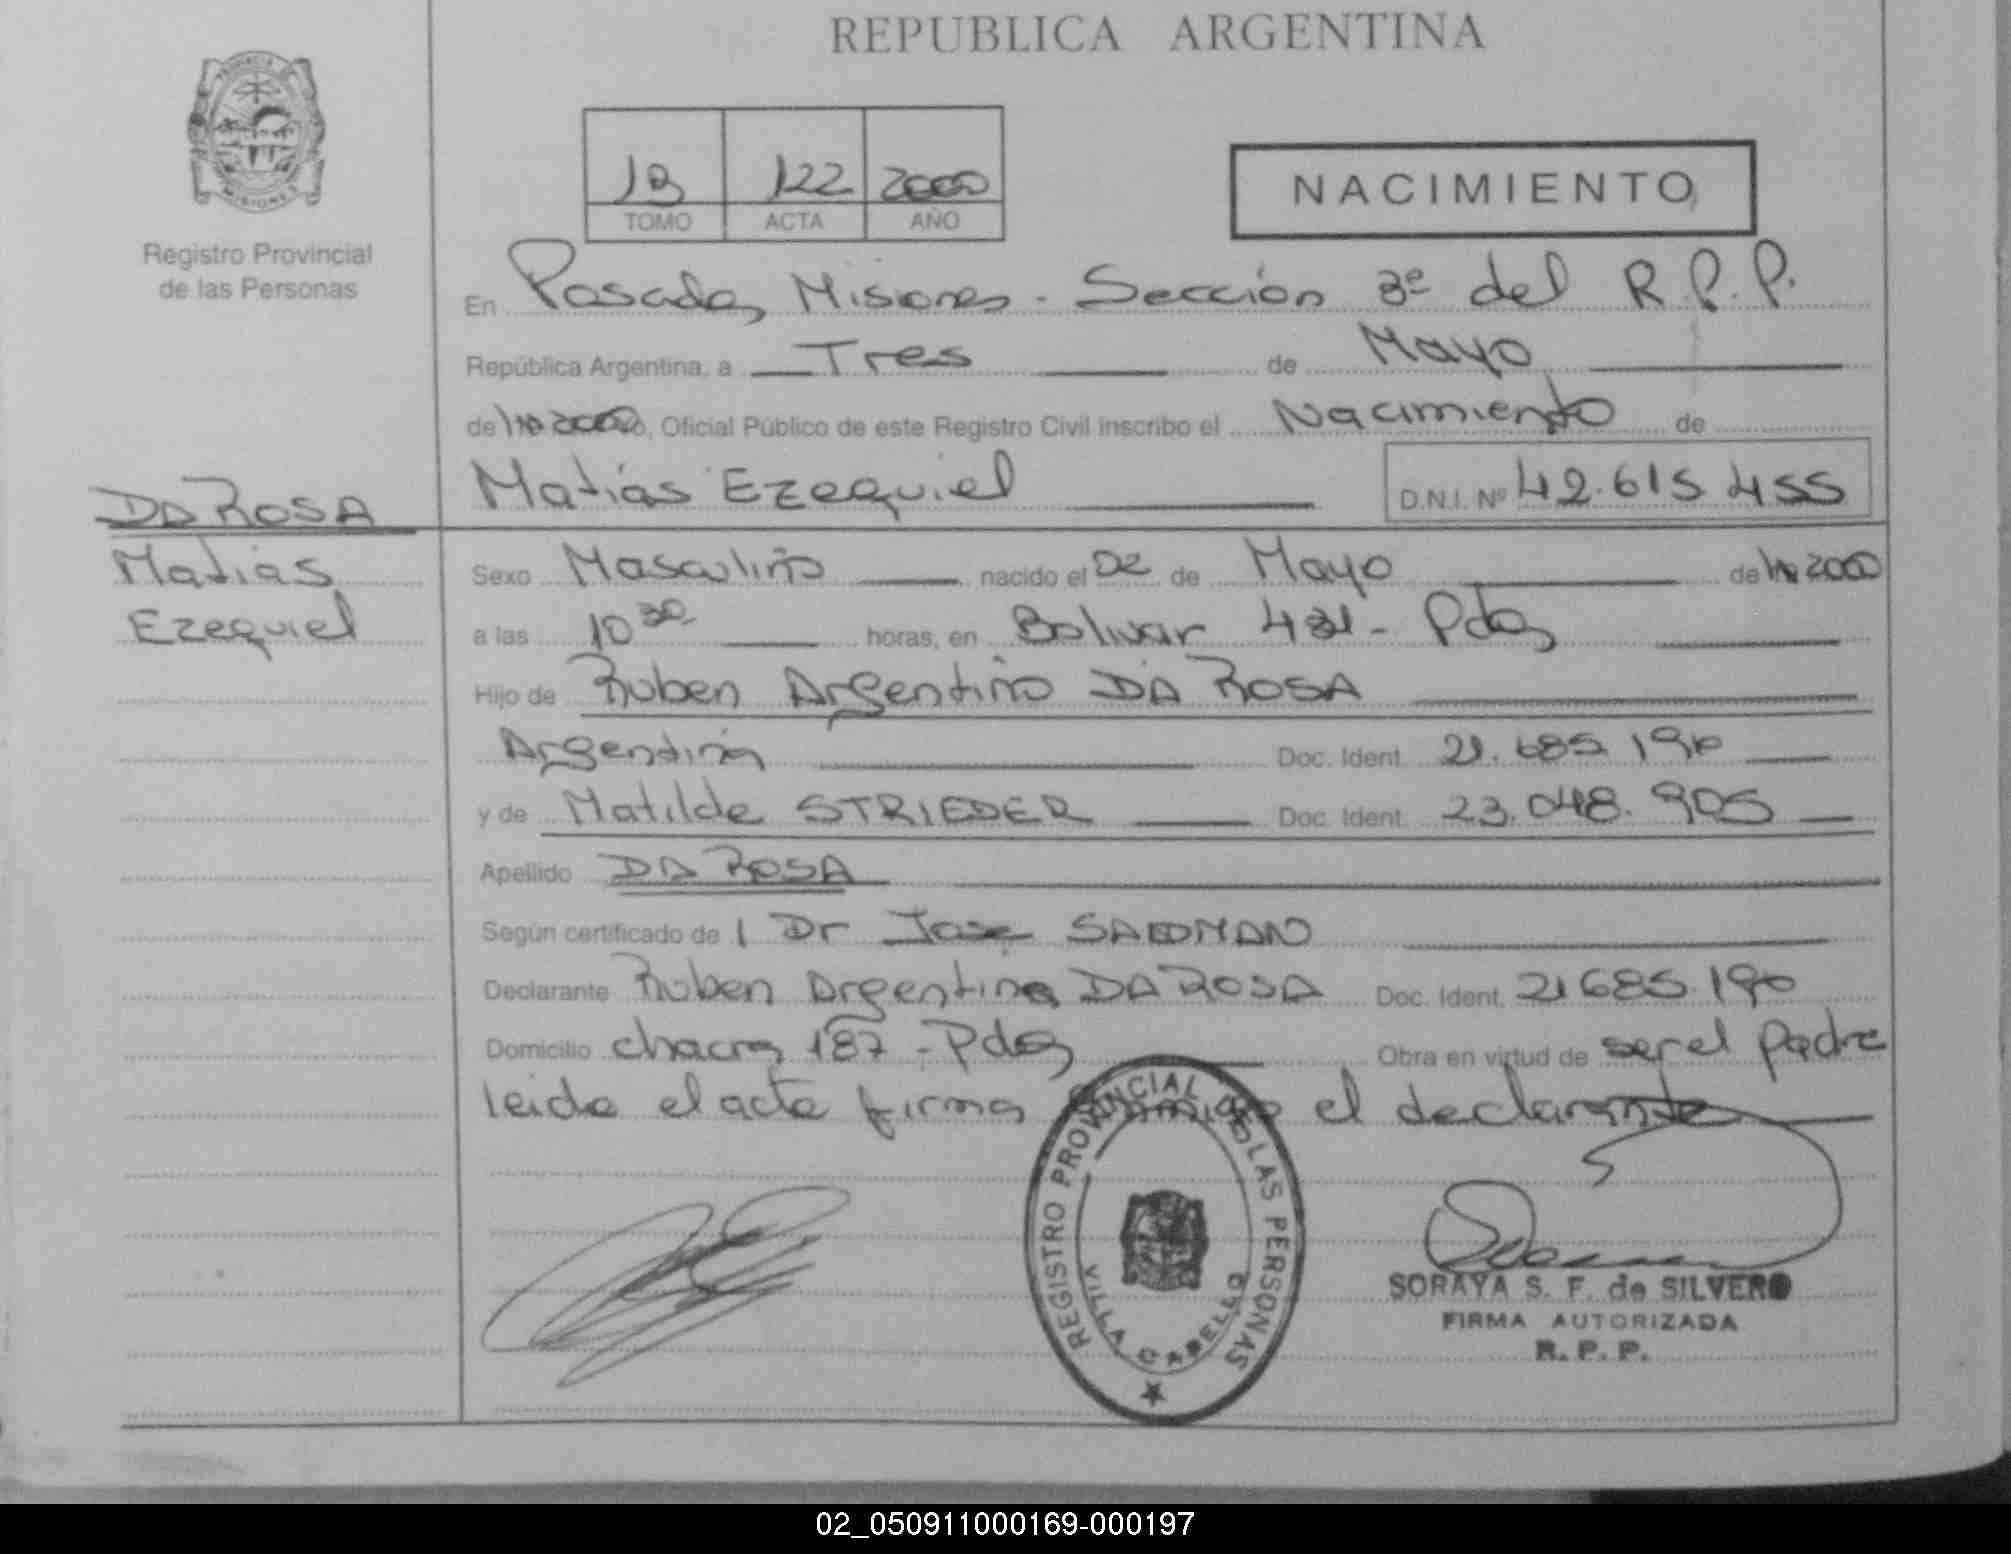 REPUBLICA ARGENTINA
PROVINCIA
MISIONES
Registro Provincial
de las Personas
122 2000
TOMO ACTA AÑO
NACIMIENTO
En Posadas, Misiones - Sección 3ª del R.P.P.
República Argentina, a Tres de Mayo
de 2000, Oficial Público de este Registro Civil inscribo el Nacimiento de
Matías Ezequiel D.N.I. Nº 42.615.455
DA ROSA
Matías
Ezequiel
Sexo Masculino nacido el 02 de Mayo de 2000
a las 10 30 horas, en Bolivar 431 - Pdas
Hijo de Ruben Argentino DA ROSA
Argentina Doc. Ident. 21.685.190
y de Matilde STRIEDER Doc. Ident. 23.048.905
Apellido DA ROSA
Según certificado de 1 Dr José
Declarante Ruben Argentino DA ROSA Doc. Ident. 21685.190
Domicilio chacra 187 - Pdas Obra en virtud de ser el padre
leida el acta firma conmigo el declarante
REGISTRO PROVINCIAL DE LAS PERSONAS
VILLA CABELLO
SORAYA S. F. de SILVERO
FIRMA AUTORIZADA
R. P. P.
02_050911000169-000197